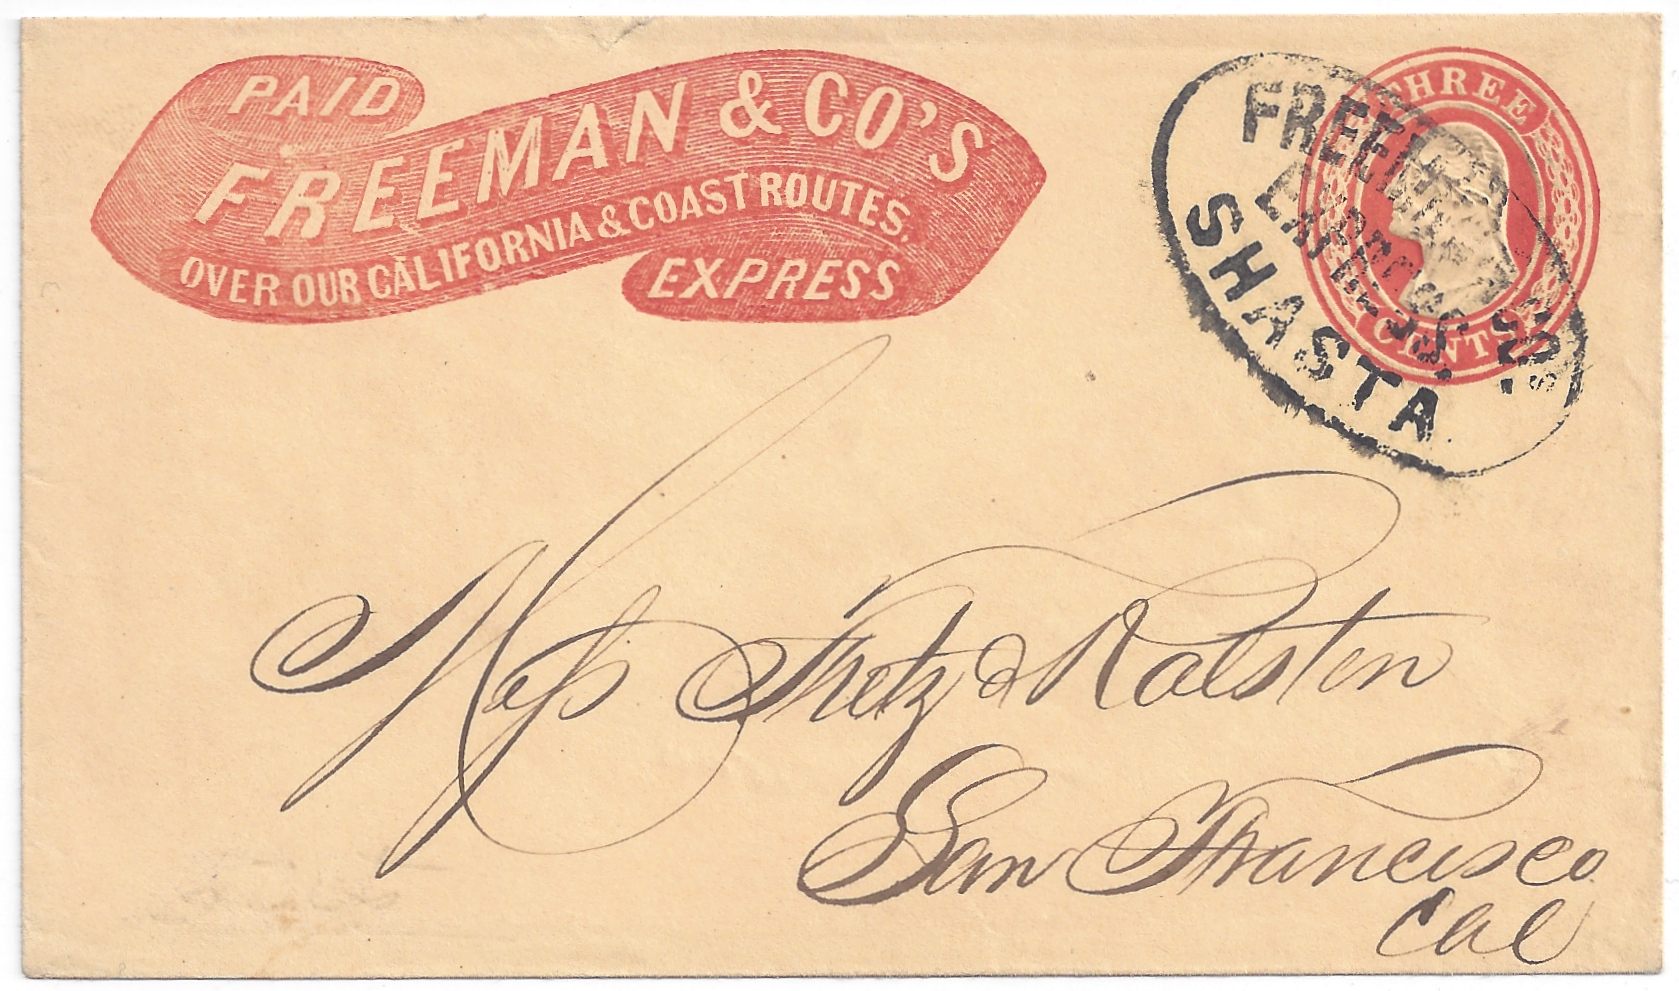 PAID
FREEMAN & CO'S
OVER OUR CALIFORNIA & COAST ROUTES.
EXPRESS
THREE
CENTS
FREEMAN & CO'S
EXPRESS
SHASTA
Mess Fretz & Ralston
San Francisco
Cal